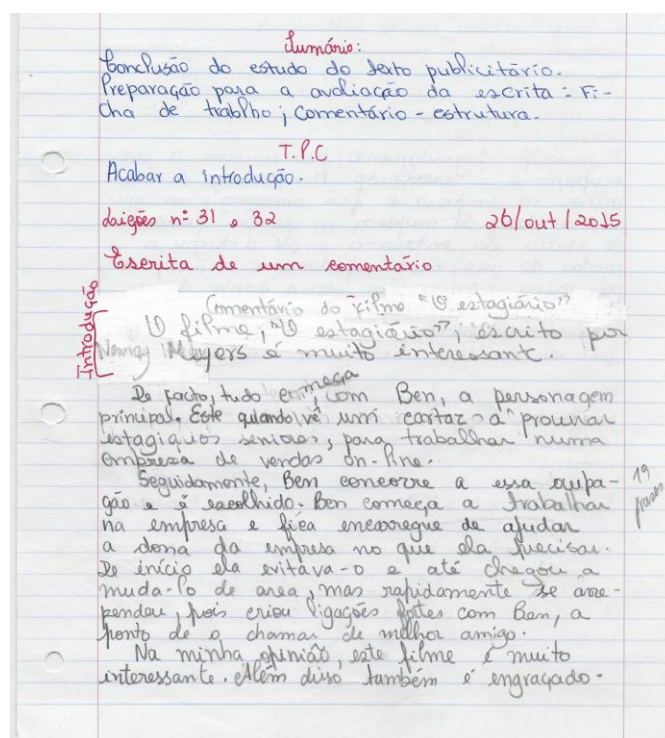 Sumário:
Conclusão do estudo do texto publicitário.
Preparação para a avaliação da escrita: Fi-
cha de trablho; Comentário - estrutura.
T.P.C
Acabar a introdução.
Lições nº 31 e 32 26/out/2015
Escrita de um comentário
Introdução
Comentário do Filme "O estagiário"
O filme, "O estagiário", escrito por
Nancy Meyers é muito interessante.
De facto, tudo começa com Ben, a personagem
prinipal. Este quando vê um cartaz a procurar
estagiários seniores, para trabalhar numa
empresa de vendas on-line.
Seguidamente, Ben concorre a essa ocupa-
ção e é escolhido. Ben começa a trabalhar
na empresa e fica encarregue de ajudar
a dona da empresa no que ela precisar.
De início ela evitava-o e até chegou a
muda-lo de area, mas rapidamente se arre-
pendeu, pois criou ligações fortes com Ben, a
ponto de o chamar de melhor amigo.
Na minha opinião, este filme é muito
interessante. Além disso também é engraçado.
19